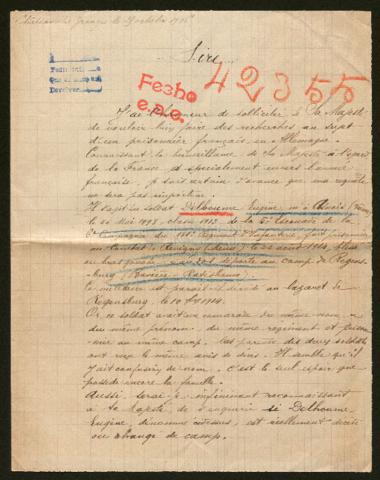 le 9 octobre 1915
Sire
42355
Fecho
e.a.e.
Devolver
J'ai l'honneur de solliciter à Sa Majesté
de vouloir bien faire des recherches au sujet
d'un prisonnier français, en Allemagne.
Connaissant la bienveillance de Sa Majesté à l'égard
de la France et spécialement envers l'armée
française, je suis certain d'avance que ma requête
ne sera pas importune.
Il s'agit du soldat Delhoume Eugène, né à
le 20 Mai 1893, classe 1913, de la 5e Escouade de la
Compagnie du Régiment d'Infanterie, fait prisonnier
au combat de (Meuse) le 22 août 1914, blessé
au bras et déporté au camp de Regens-
burg (Bavière - Ratisbonne)
Ce militaire est parait-il décédé au lazaret de
Regensburg, le 10 1914.
Or, ce soldat avait un camarade du même nom,
du même prénom, du même régiment et prison-
nier au même camp. Les parents des deux soldats
ont reçu le même avis de décès. Il semble qu'il
y ait confusion de nom. C'est le seul espoir que
possède encore la famille.
Aussi, serai-je infiniment reconnaissant
à Sa Majesté de s'enquérir si Delhoume
Eugène, dénommé ci-dessus, est réellement décédé
ou a changé de camp.